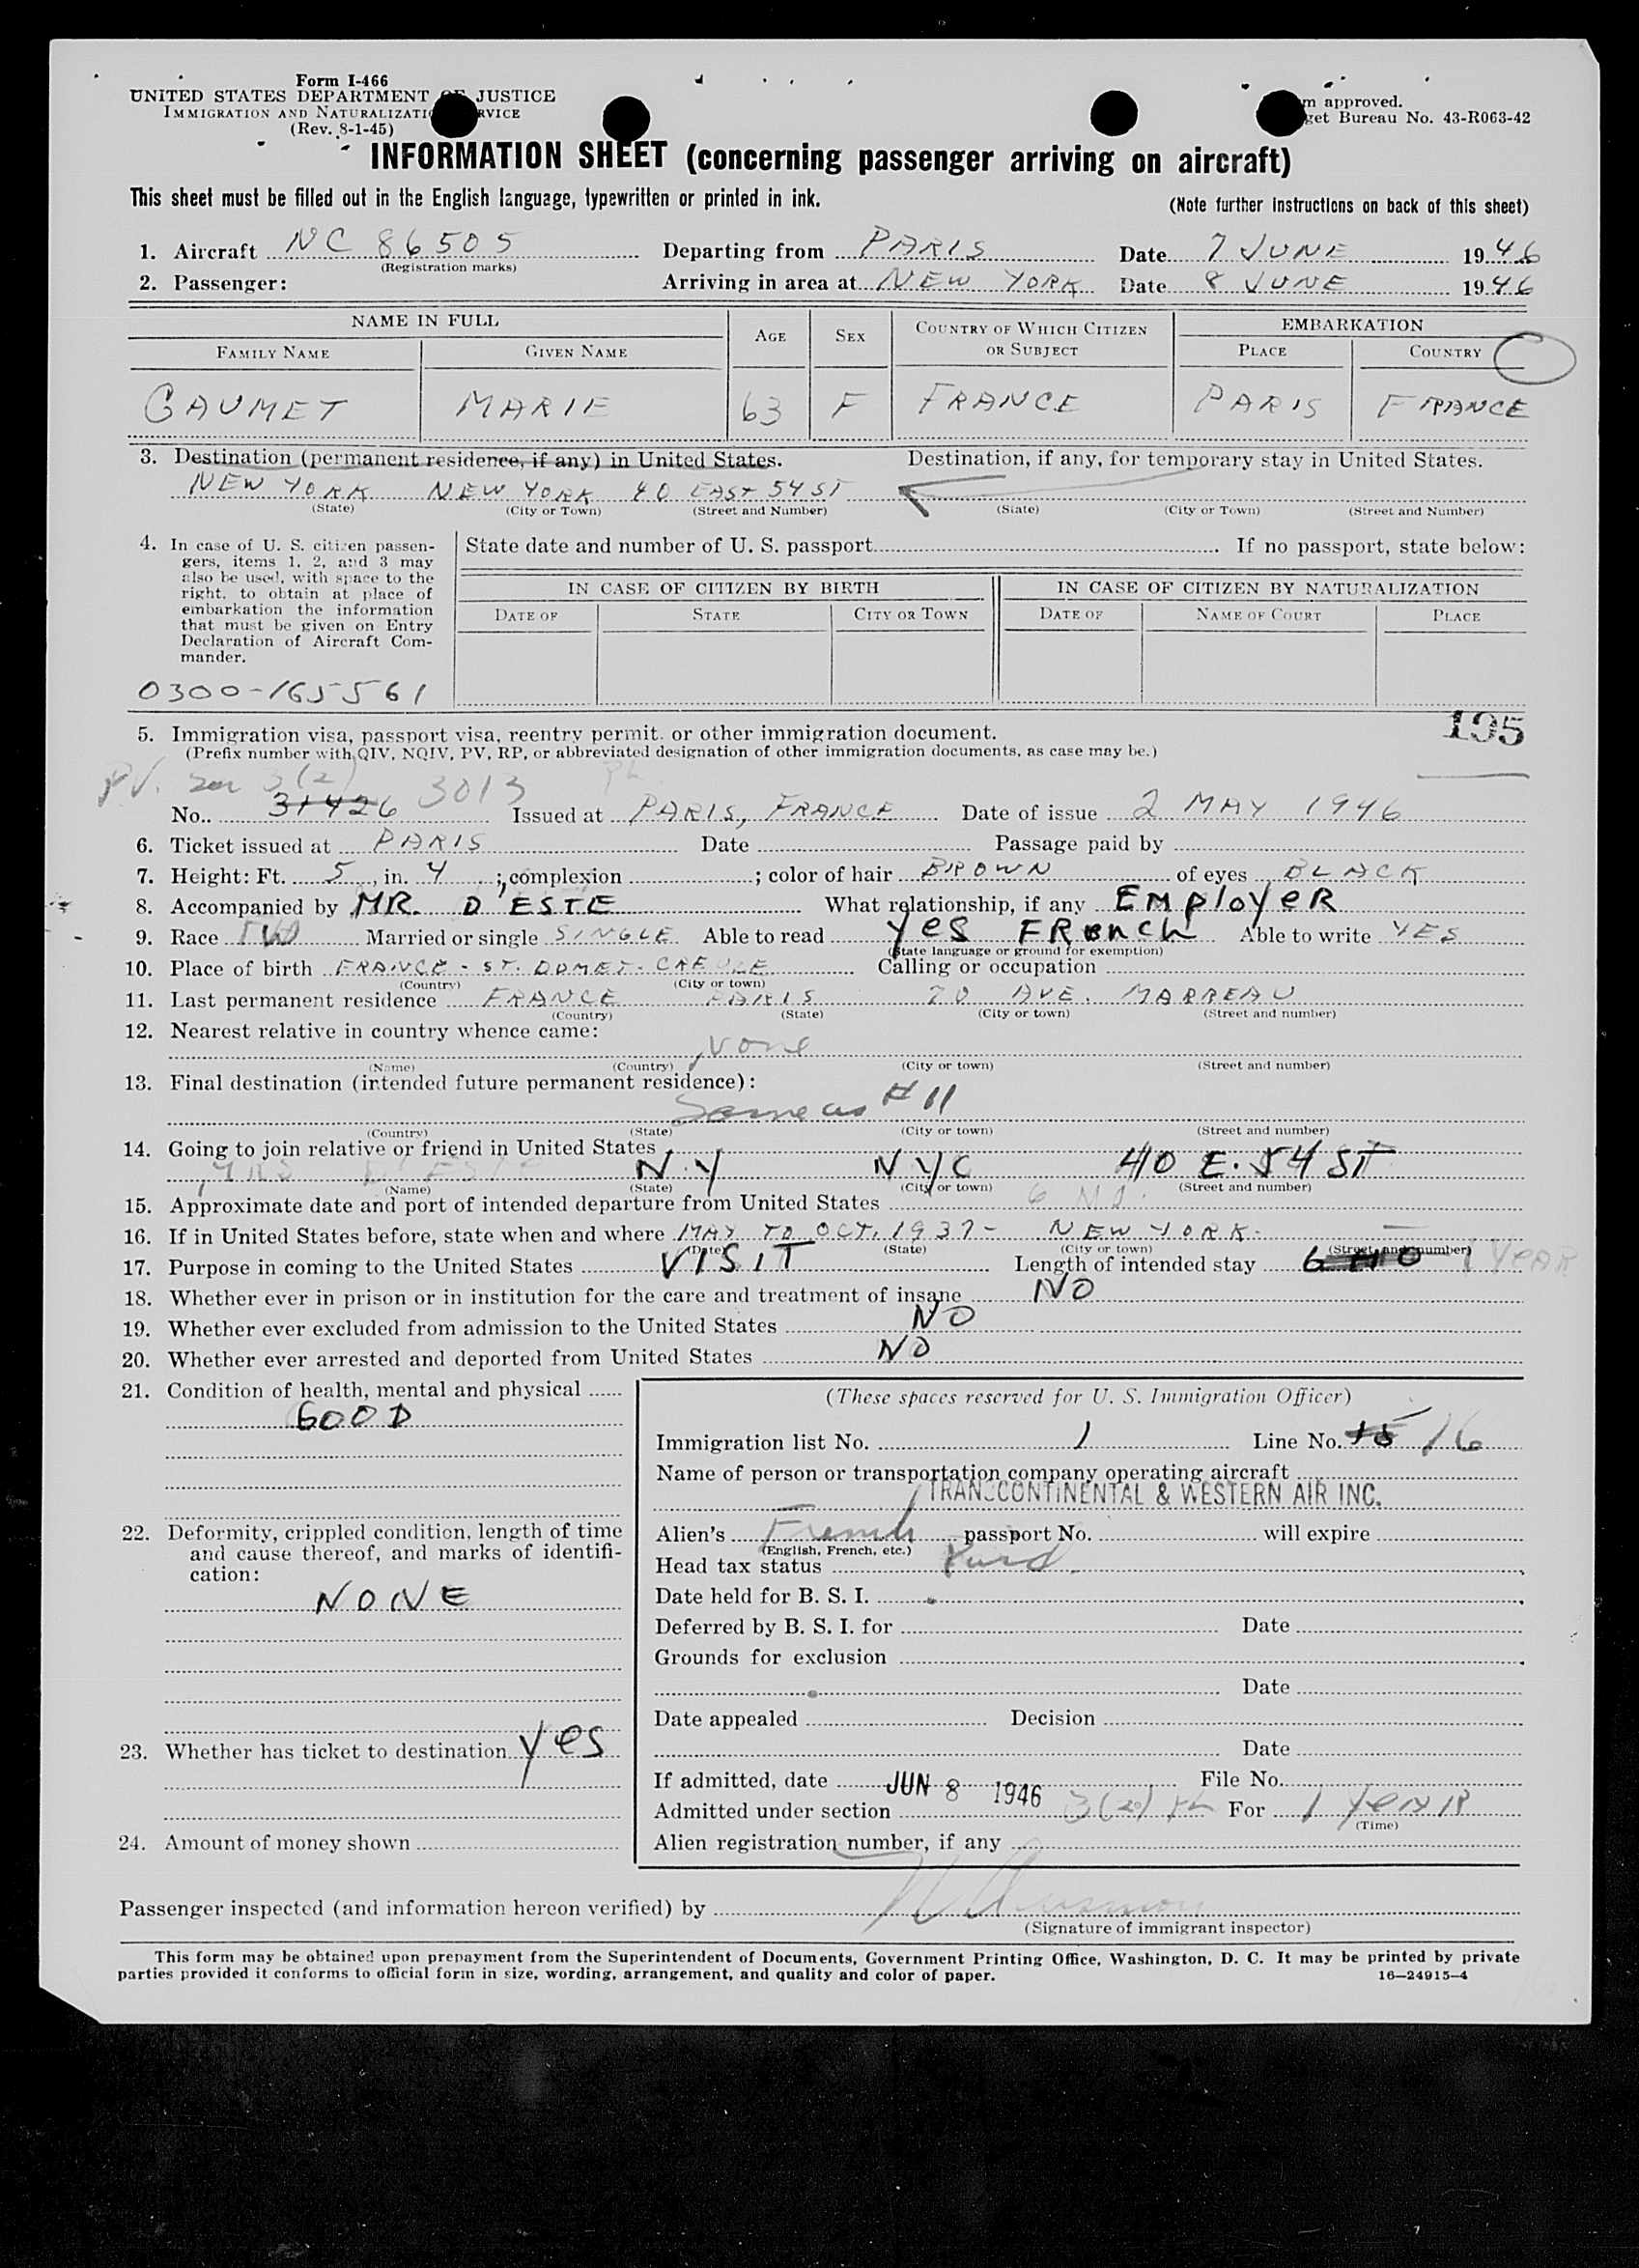 Form I-466
UNITED STATES DEPARTMENT OF JUSTICE
IMMIGRATION AND NATURALIZATION SERVICE
(Rev. 8-1-45)
m approved.
get Bureau No. 43-R063-42
INFORMATION SHEET (concerning passenger arriving on aircraft)
This sheet must be filled out in the English language, typewritten or printed in ink.
(Note further instructions on back of this sheet)
1. Aircraft NC 86505 Departing from PARIS Date 7 JUNE 1946
(Registration marks)
2. Passenger: Arriving in area at NEW YORK Date 8 JUNE 1946
NAME IN FULL AGE SEX COUNTRY OF WHICH CITIZEN OR SUBJECT EMBARKATION
FAMILY NAME GIVEN NAME PLACE COUNTRY
GAUMET MARIE 63 F FRANCE PARIS FRANCE
3. Destination (permanent residence, if any) in United States. Destination, if any, for temporary stay in United States.
NEW YORK NEW YORK 40 EAST 54 ST
(State) (City or Town) (Street and Number) (State) (City or Town) (Street and Number)
4. In case of U. S. citizen passen-
gers, items 1, 2, and 3 may
also be used, with space to the
right, to obtain at place of
embarkation the information
that must be given on Entry
Declaration of Aircraft Com-
mander.
0300-165561
State date and number of U. S. passport. If no passport, state below:
IN CASE OF CITIZEN BY BIRTH IN CASE OF CITIZEN BY NATURALIZATION
DATE OF STATE CITY OR TOWN DATE OF NAME OF COURT PLACE
195
5. Immigration visa, passport visa, reentry permit, or other immigration document.
(Prefix number with QIV, NQIV, PV, RP, or abbreviated designation of other immigration documents, as case may be.)
PV. 3(2) 3013
No. 31426 Issued at PARIS, FRANCE Date of issue 2 MAY 1946
6. Ticket issued at PARIS Date Passage paid by
7. Height: Ft. 5, in. 4; complexion ; color of hair BROWN of eyes BLACK
8. Accompanied by MR. D'ESTE What relationship, if any EMployeR
9. Race Married or single SINGLE Able to read yes FRench Able to write YES
(State language or ground for exemption)
10. Place of birth FRANCE - ST. DOMET - Calling or occupation
(Country) (City or town)
11. Last permanent residence FRANCE PARIS 70 AVE. MARREAU
(Country) (State) (City or town) (Street and number)
12. Nearest relative in country whence came:
None
(Name) (Country) (City or town) (Street and number)
13. Final destination (intended future permanent residence):
Same as #11
(Country) (State) (City or town) (Street and number)
14. Going to join relative or friend in United States
MRS D'ESTE N.Y NYC 40 E. 54 ST
(Name) (State) (City or town) (Street and number)
15. Approximate date and port of intended departure from United States 6 MO.
16. If in United States before, state when and where MAY TO OCT. 1937 - NEW YORK -
(Date) (State) (City or town) (Street and number)
17. Purpose in coming to the United States VISIT Length of intended stay 6 MO 1 YEAR
18. Whether ever in prison or in institution for the care and treatment of insane NO
19. Whether ever excluded from admission to the United States NO
20. Whether ever arrested and deported from United States NO
21. Condition of health, mental and physical
GOOD
22. Deformity, crippled condition, length of time
and cause thereof, and marks of identifi-
cation:
NONE
23. Whether has ticket to destination yes
24. Amount of money shown
(These spaces reserved for U. S. Immigration Officer)
Immigration list No. 1 Line No. 15 16
Name of person or transportation company operating aircraft
TRANSCONTINENTAL & WESTERN AIR INC.
Alien's French passport No. will expire
(English, French, etc.)
Head tax status
Date held for B. S. I.
Deferred by B. S. I. for Date
Grounds for exclusion
Date
Date appealed Decision
Date
If admitted, date JUN 8 1946 File No.
Admitted under section 3(2) For 1 YEAR
(Time)
Alien registration number, if any
Passenger inspected (and information hereon verified) by
(Signature of immigrant inspector)
This form may be obtained upon prepayment from the Superintendent of Documents, Government Printing Office, Washington, D. C. It may be printed by private
parties provided it conforms to official form in size, wording, arrangement, and quality and color of paper. 16—24915-4